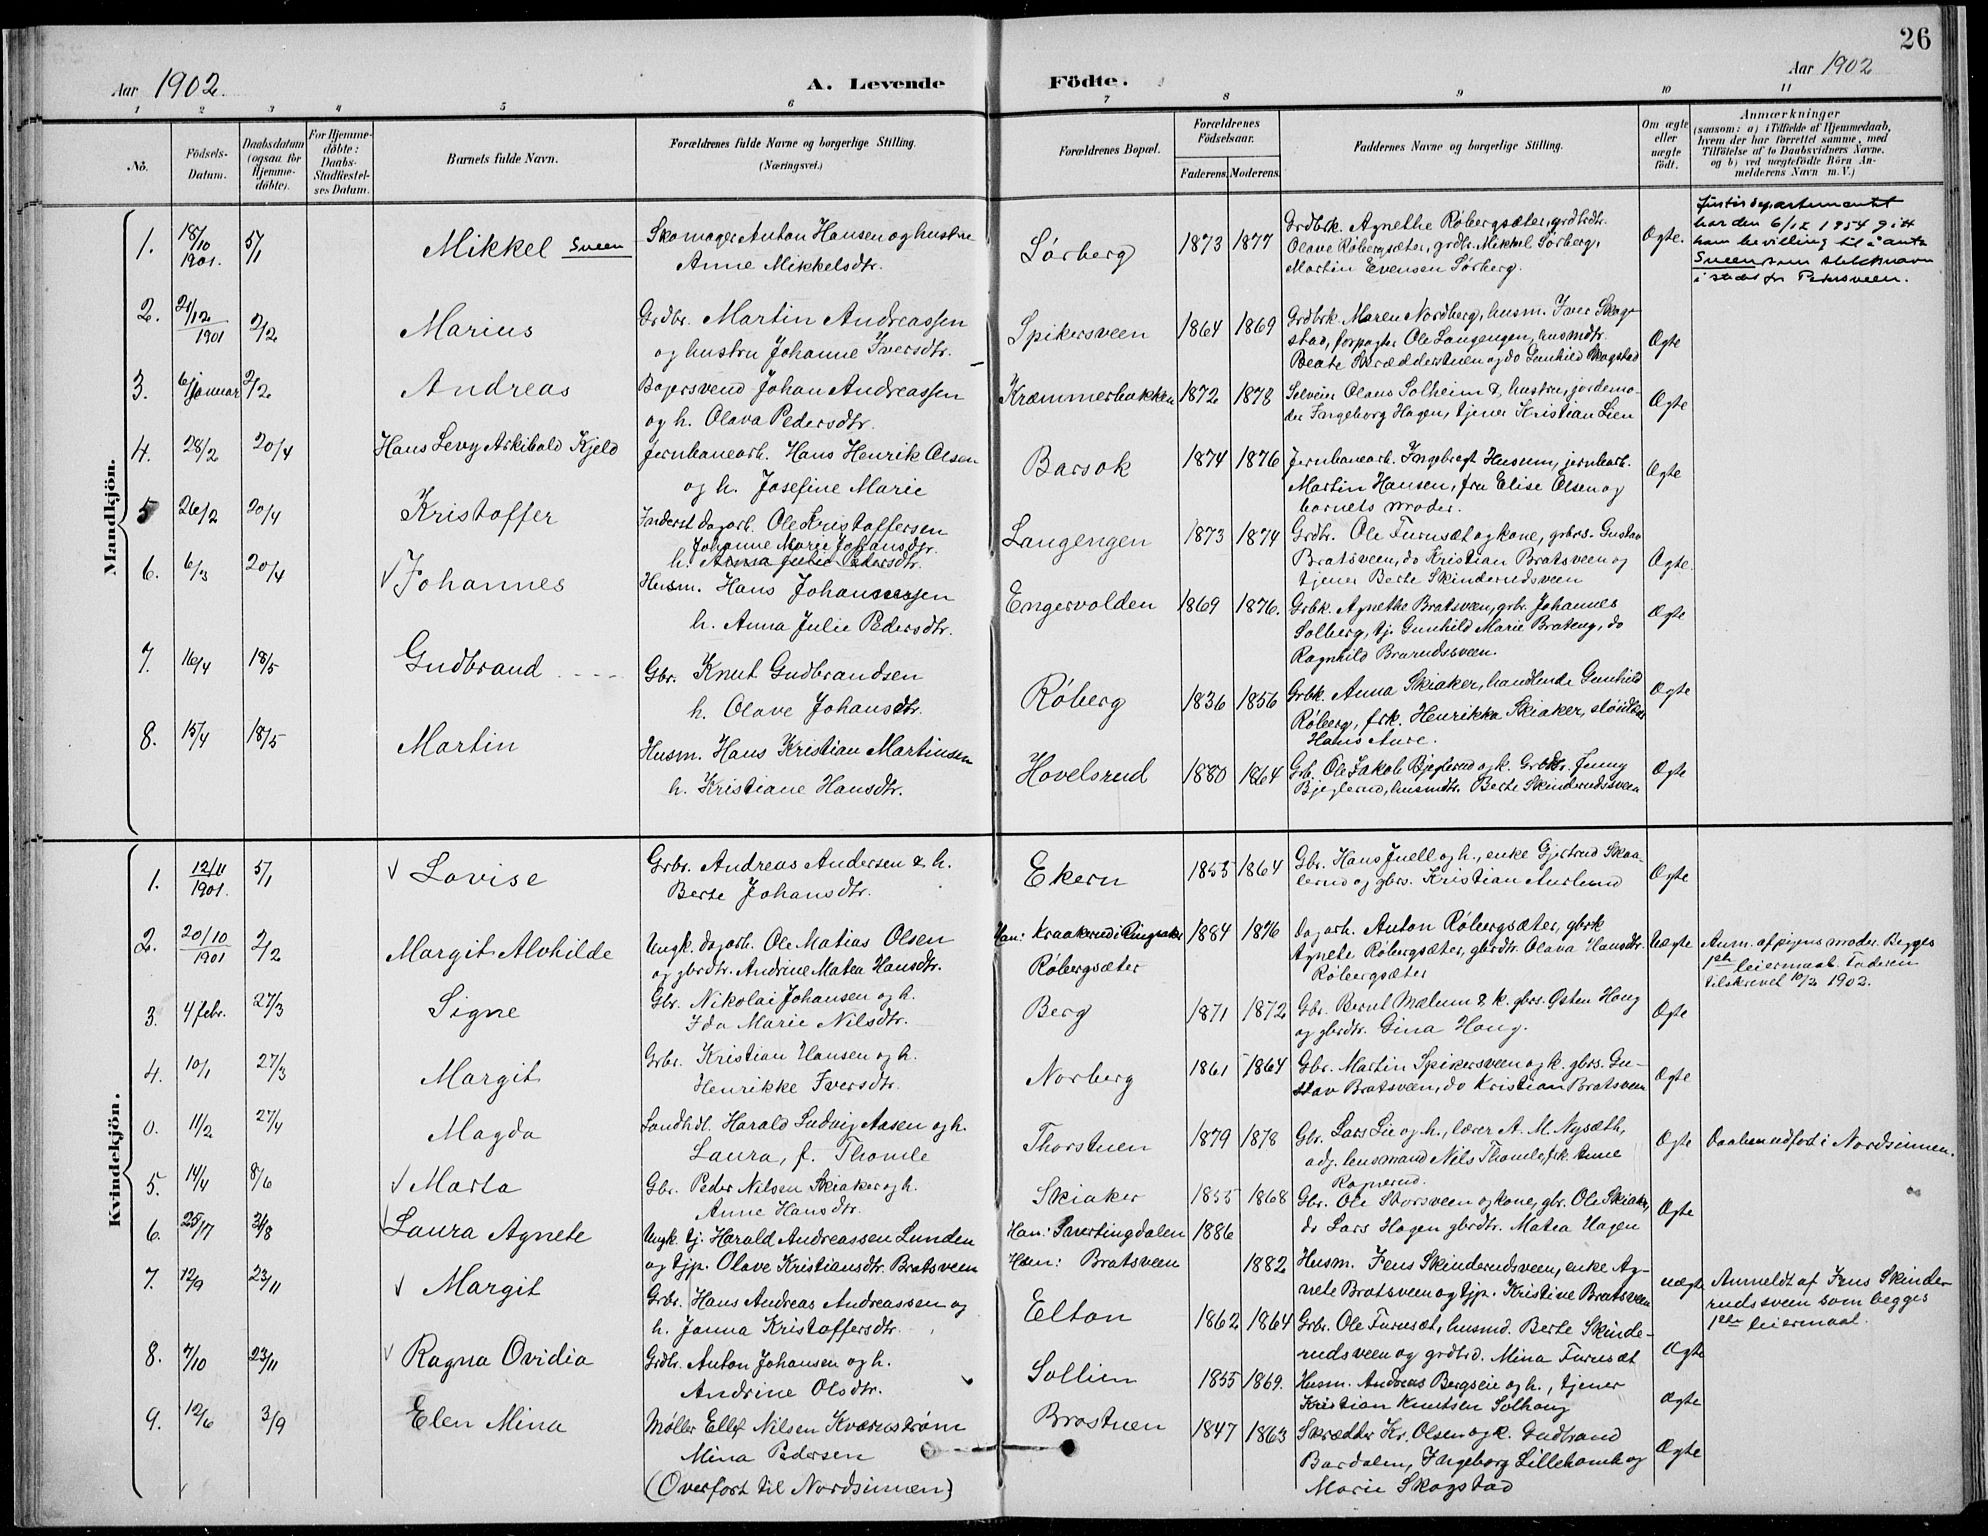 26
Aar 1902.
A. Levende
Födte.
Aar 1902
1 2 3 4 5 6 7 8 9 10 11
No.
Födsels-
Datum.
Daabsdatum
(ogsaa for
Hjemme-
döbte).
For Hjemme-
döbte:
Daabs-
Stadfæstel-
ses Datum.
Barnets fulde Navn.
Forældrenes fulde Navne og borgerlige Stilling.
(Næringsvei.)
Forældrenes Bopæl.
Forældrenes
Födselsaar.
Faderens. Moderens.
Faddernes Navne og borgerlige Stilling.
Om ægte
eller
uægte
födt.
Anmærkninger
(saasom: a) i Tilfælde af Hjemmedaab,
hvem der har forrettet samme, med
Tilföielse af to Daabsvidners Navne.
og b) ved uægtefödte Börn An-
melderens Navn m. V.)
Mandkjön.
1. 18/10 1901. 5/1 Mikkel Sveen
Skomager Anton Hansen og hustru
Anne Mikkelsdtr.
Sørberg 1873 1877
Grdbrk. Agnethe Røbergsæter, grdbrdtr.
Olave Røbergsæter, grdbr. Mikkel Sørberg,
Martin Evensen Sørberg.
Ægte.
Justisdepartementet
har den 6/ 1954 gitt
ham bevilling til å anta
Sveen som slektsnavn
i stedet for Petersveen.
2. 21/12 1901 2/2 Marius
Grdbr. Martin Andreassen
og hustru Johanne Iversdtr.
Spikersveen 1864 1869
Grdbrk. Maren Nordberg, husm. Iver Skog-
stad, forpagter Ole Langengen, husmdtr.
Beate Skrædderstuen og do Gunhild Skogstad
Ægte
3. 6/januar 2/2 Andreas
Bagersvend Johan Andreassen
og h. Olava Pedersdtr.
Kræmmerbakken 1872 1878
Selveier Olaus Solheim & hustru, jordemo-
der Ingeborg Hagen, tjener Kristian Lien
Ægte
4. 28/2 20/4 Hans Levy Arkibald Kjeld
Jernbanearb. Hans Henrik Olsen
og h. Josefine Marie
Barsok 1874 1876
Jernbanearb. Ingebregt Husum, jernbarb.
Martin Hansen, fru Elise Olsen og
barnets moder.
Ægte
5 26/2 20/4 Kristoffer
Inderst dagarb. Ole Kristoffersen
Johanne Marie Johansdtr.
h. Anna Julie Pedersdtr.
Langengen 1873 1874
Grdbr. Ole Furusæt og kone, grbrs. Gustav
Bratsveen, do Kristian Bratsveen og
tjener Berte Skinderudsveen
Ægte.
6. 6/3 20/4 √ Johannes
Husm. Hans Johannessen
h. Anna Julie Pedersdtr.
Engervolden 1869 1876.
Grbk. Agnethe Bratsveen, grbr. Johannes
Solberg, tj. Gunhild Marie Brateng, do
Ragnhild Brarudssveen.
Ægte
7. 16/4 18/5 Gudbrand
Gbr. Knut Gudbrandsen
h. Olave Johansdtr.
Røberg 1836 1856
Grbk. Anna Skiaker, handlende Gunhild
Røberg, frk. Henrikka Skiaker,
Hans Aure.
Ægte
8. 15/4 18/5 Martin
Husm. Hans Kristian Martinsen
h. Kristiane Hansdtr.
Hovelsrud 1880 1864
Grb. Ole Jakob Bjeglerud og k. Grbdtr. Jenny
Bjeglerud, husmdtr. Berte Skinderudssveen
Ægte
Kvindekjön.
1. 12/11 1901. 5/1 √ Lovise
Grbr. Andreas Andersen & h.
Berte Johansdtr.
Ekern 1855 1864
Gbr. Hans Juell og h., enke Gjertrud Skaa-
lerud og gbrs. Kristian Aurlund
Ægte
2. 20/10 1901 2/2 Margit Alvhilde
Ungk. dagarb. Ole Matias Olsen
og gbrdtr. Andrine Matea Hansdtr.
Han: Kraakerud i Ringsaker
Røbergsæter
1884 1876
Dagarb. Anton Røbergsæter, gbrk
Agnete Røbergsæter, gbrdtr. Olava Hansdtr.
Røbergsæter
Uægte
Anm. af pigens moder. Begges
1ste leiermaal. Faderen
tilskrevet 10/2 1902.
3. 4 febr. 27/3 Signe
Gbr. Nikolai Johansen og h.
Ida Marie Nilsdtr.
Berg 1871 1872
Gbr. Bernt Mælum & k. gbrs. Østen Haug
og gbrdtr. Gina Haug.
Ægte
4. 10/1 27/3 Margit
Grbr. Kristian Hansen og h.
Henrikke Iversdtr.
Norberg 1861 1864
Gbr. Martin Spikersveen og k. gbrs. Gu-
stav Bratsveen, do Kristian Bratsveen
Ægte
0. 11/2 27/4 Magda
Landhdl. Harald Ludvig Aasen og h.
Laura, f. Thomle
Thorstuen 1879 1878
Gbr. Lars Lie og h., lærer A. M. Nysæth,
adj. lensmand Nils Thomle, frk. Anne
Rognerud.
Ægte
Daaben udført i Nordsinnen.
5. 14/4 8/6 √ Marta
Gbr. Peder Nilsen Skiaker og h.
Anne Hansdtr.
Skiaker 1855 1868
Gbr. Ole Storsveen og kone, gbr. Ole Skiaker,
do Lars Hagen gbrdtr. Matea Hagen
Ægte
6. 25/7 3/8 √ Laura Agnete
Ungk. tj. Harald Andreassen Lunden
og tjp. Olave Kristiansdtr. Bratsveen
Han: Snertingdalen 1886
Hun: Bratsveen 1882
Husm. Jens Skinderudsveen, enke Ag-
nete Bratsveen og tjp. Kristine Bratsveen
uægte
Anmeldt af Jens Skinde-
rudssveen som begges
1ste leiermaal.
7. 12/9 23/11 √ Margit
Grbr. Hans Andreas Andreassen og
h. Janna Kristoffersdtr.
Elton 1862 1864
Grbr. Ole Furusæt, husmd. Berte Skinde-
rudsveen og grdbrd. Mina Furusæt
Ægte
8. 7/10 23/11 √ Ragna Ovidia
Grdbr. Anton Johansen og h.
Andrine Olsdtr.
Sollien 1855 1869.
Husm. Andreas Bergseie og h., tjener
Kristian Knutsen Solhaug
Ægte
9. 12/6 3/9 Elen Mina
Møller Ellef Nilsen Kværnstrøm
Mina Pedersen
(Overført til Nordsinnen)
Brostuen 1847 1863
Skrædder Kr. Olsen og k. Gudbrand
Bardalen, Ingeborg og
Marie Skogstad
Ægte